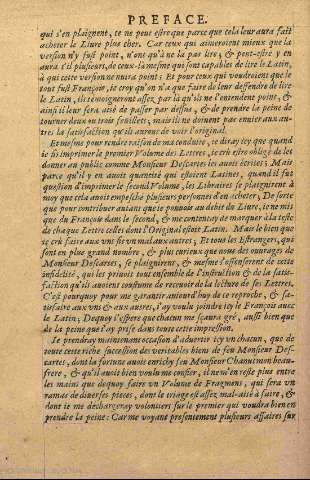 PREFACE.
qui s'en plaignent, ce ne peut estre que parce que cela leur aura fait
acheter le Liure plus cher. Car ceux qui aimeroient mieux que la
version n'y fust point, n'ont qu'à ne la pas lire; & peut-estre y en
aura t'il plusieurs, de ceux-là mesme qui sont capables de lire le Latin,
à qui cette version ne nuira point; Et pour ceux qui voudroient que le
tout fust François, ie croy qu'on n'a que faire de leur deffendre de lire
le Latin, ils témoigneront assez par là qu'ils ne l'entendent point, &
ainsi il leur sera aisé de passer par dessus, & de prendre la peine de
tourner deux ou trois feuillets; mais ils ne doiuent pas enuier aux au-
tres la satisfaction qu'ils auront de voir l'original.
Et mesme pour rendre raison de ma conduite, ie diray icy que quand
ie fis imprimer le premier Volume des Lettres, ie crû estre obligé de les
donner au public comme Monsieur Descartes les auoit écrites; Mais
parce qu'il y en auoit quantité qui estoient Latines, quand il fut
question d'imprimer le second Volume, les Libraires se plaignirent à
moy que cela auoit empesché plusieurs personnes d'en acheter; De sorte
que pour contribuer autant que ie pouuois au debit du Liure, ie ne mis
que du François dans le second, & me contentay de marquer à la teste
de chaque Lettre celles dont l'Original estoit Latin. Mais le bien que
i'ay crû faire aux vns fit vn mal aux autres; Et tous les Estrangers, qui
sont en plus grand nombre, & plus curieux que nous des ouurages de
Monsieur Descartes, se plaignirent, & mesme s'offenserent de cette
infidelité, qui les priuoit tous ensemble de l'instruction & de la satis-
faction qu'ils auoient coustume de receuoir de la lecture de ses Lettres.
C'est pourquoy pour me garantir aujourd'huy de ce reproche, & sa-
tisfaire aux vns & aux autres, i'ay voulu joindre icy le François auec
le Latin; Dequoy i'espere que chacun me sçaura gré, aussi bien que
de la peine que i'ay prise dans toute cette impression.
Ie prendray maintenant occasion d'aduertir icy vn chacun, que de
toute cette riche succession des veritables biens de feu Monsieur Des-
cartes, dont la fortune auoit enrichy feu Monsieur Chanut mon beau-
frere, & qu'il auoit bien voulu me confier, il ne m'en reste plus entre
les mains que dequoy faire vn Volume de Fragmens, qui sera vn
ramas de diuerses pieces, dont le triage est assez mal-aisé à faire, &
dont ie me déchargeray volontiers sur le premier qui voudra bien en
prendre la peine: Car me voyant presentement plusieurs affaires sur